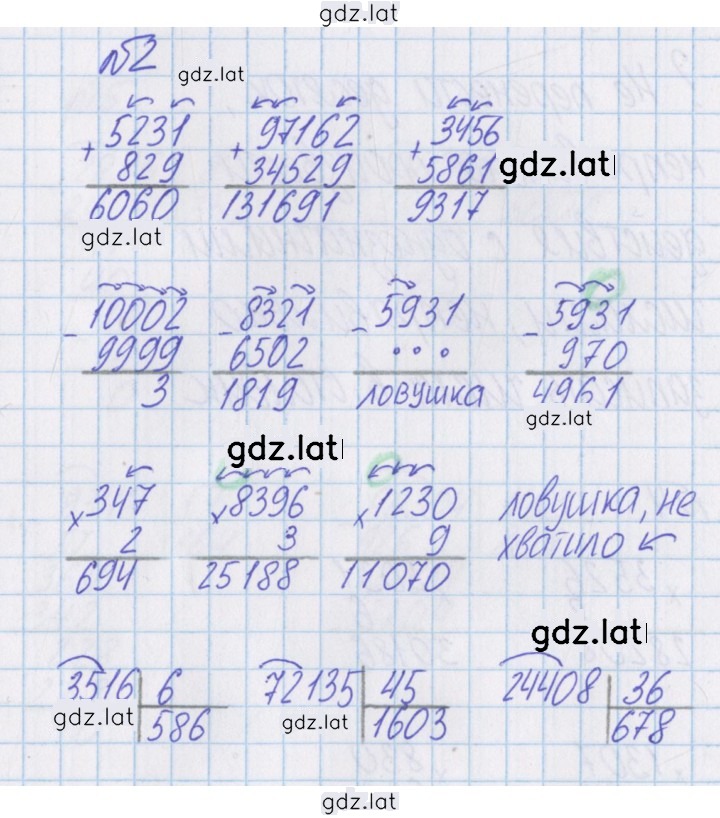 gdz.lat
№2
gdz.lat
+ 5231 + 97162 + 3456
829 34529 5861 gdz.lat
6060 131691 9317
gdz.lat
- 10002 - 8321 - 5931 - 5931
9999 6502 ... 970
3 1819 ловушка 4961
gdz.lat
gdz.lat
x 347 x 8396 x 1230 ловушка, не
2 3 9 хватило
694 25188 11070
gdz.lat
3516 6 72135 45 24408 36
gdz.lat 586 gdz.lat 1603 678
gdz.lat